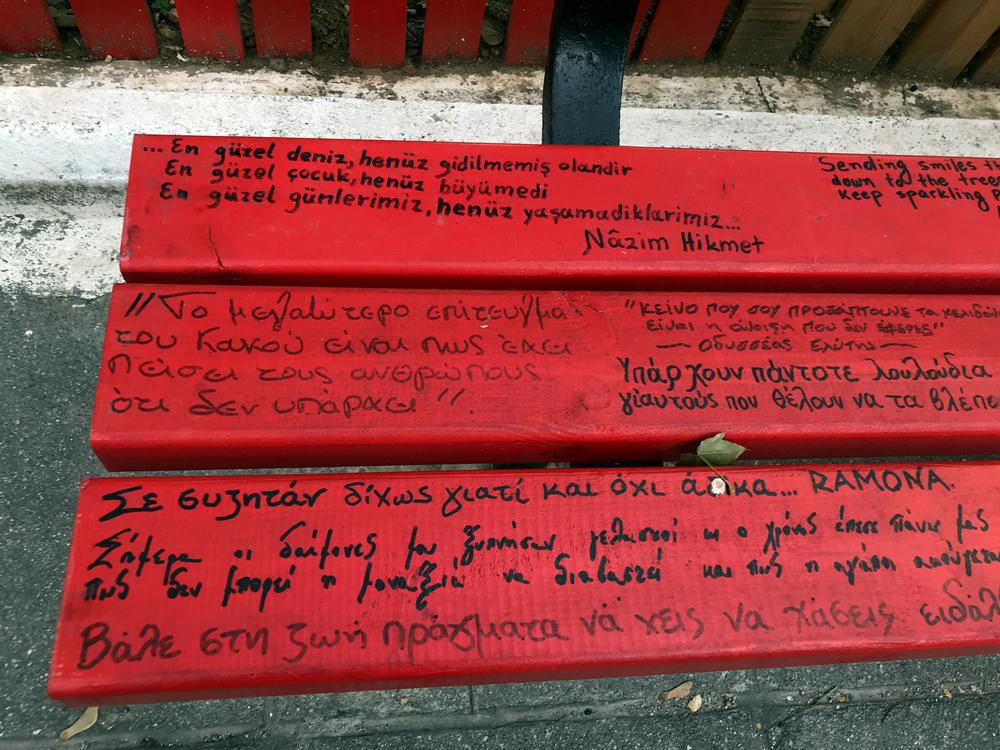 ... En güzel deniz, henüz gidilmemiş olandir
En güzel çocuk, henüz büyümedi
En güzel günlerimiz, henüz yaşamadiklarimiz...
Nâzim Hikmet
Sending smiles
down to the trees
keep sparkling
"Το μεγαλύτερο επίτευγμα
του Κακού είναι πως έχει
πείσει τους ανθρώπους
ότι δεν υπάρχει".
"κείνο που σου προσάπτουνε τα χελιδόν
είναι η άνοιξη που δεν έφερες"
— Οδυσσέας Ελύτης —
Υπάρχουν πάντοτε λουλούδια
γι'αυτούς που θέλουν να τα βλέπο
Σε συζητάν δίχως γιατί και όχι άδικα... RAMONA.
Σήμερα οι δαίμονες μου ξυπνήσαν γελαστοί κι ο χρόνος έπεσε πάνω μας
πως δεν μπορεί η μοναξιά να διαβαστεί και πως η αγάπη ακούγεται
Βάλε στη ζωή πράγματα νά χεις να χάσεις